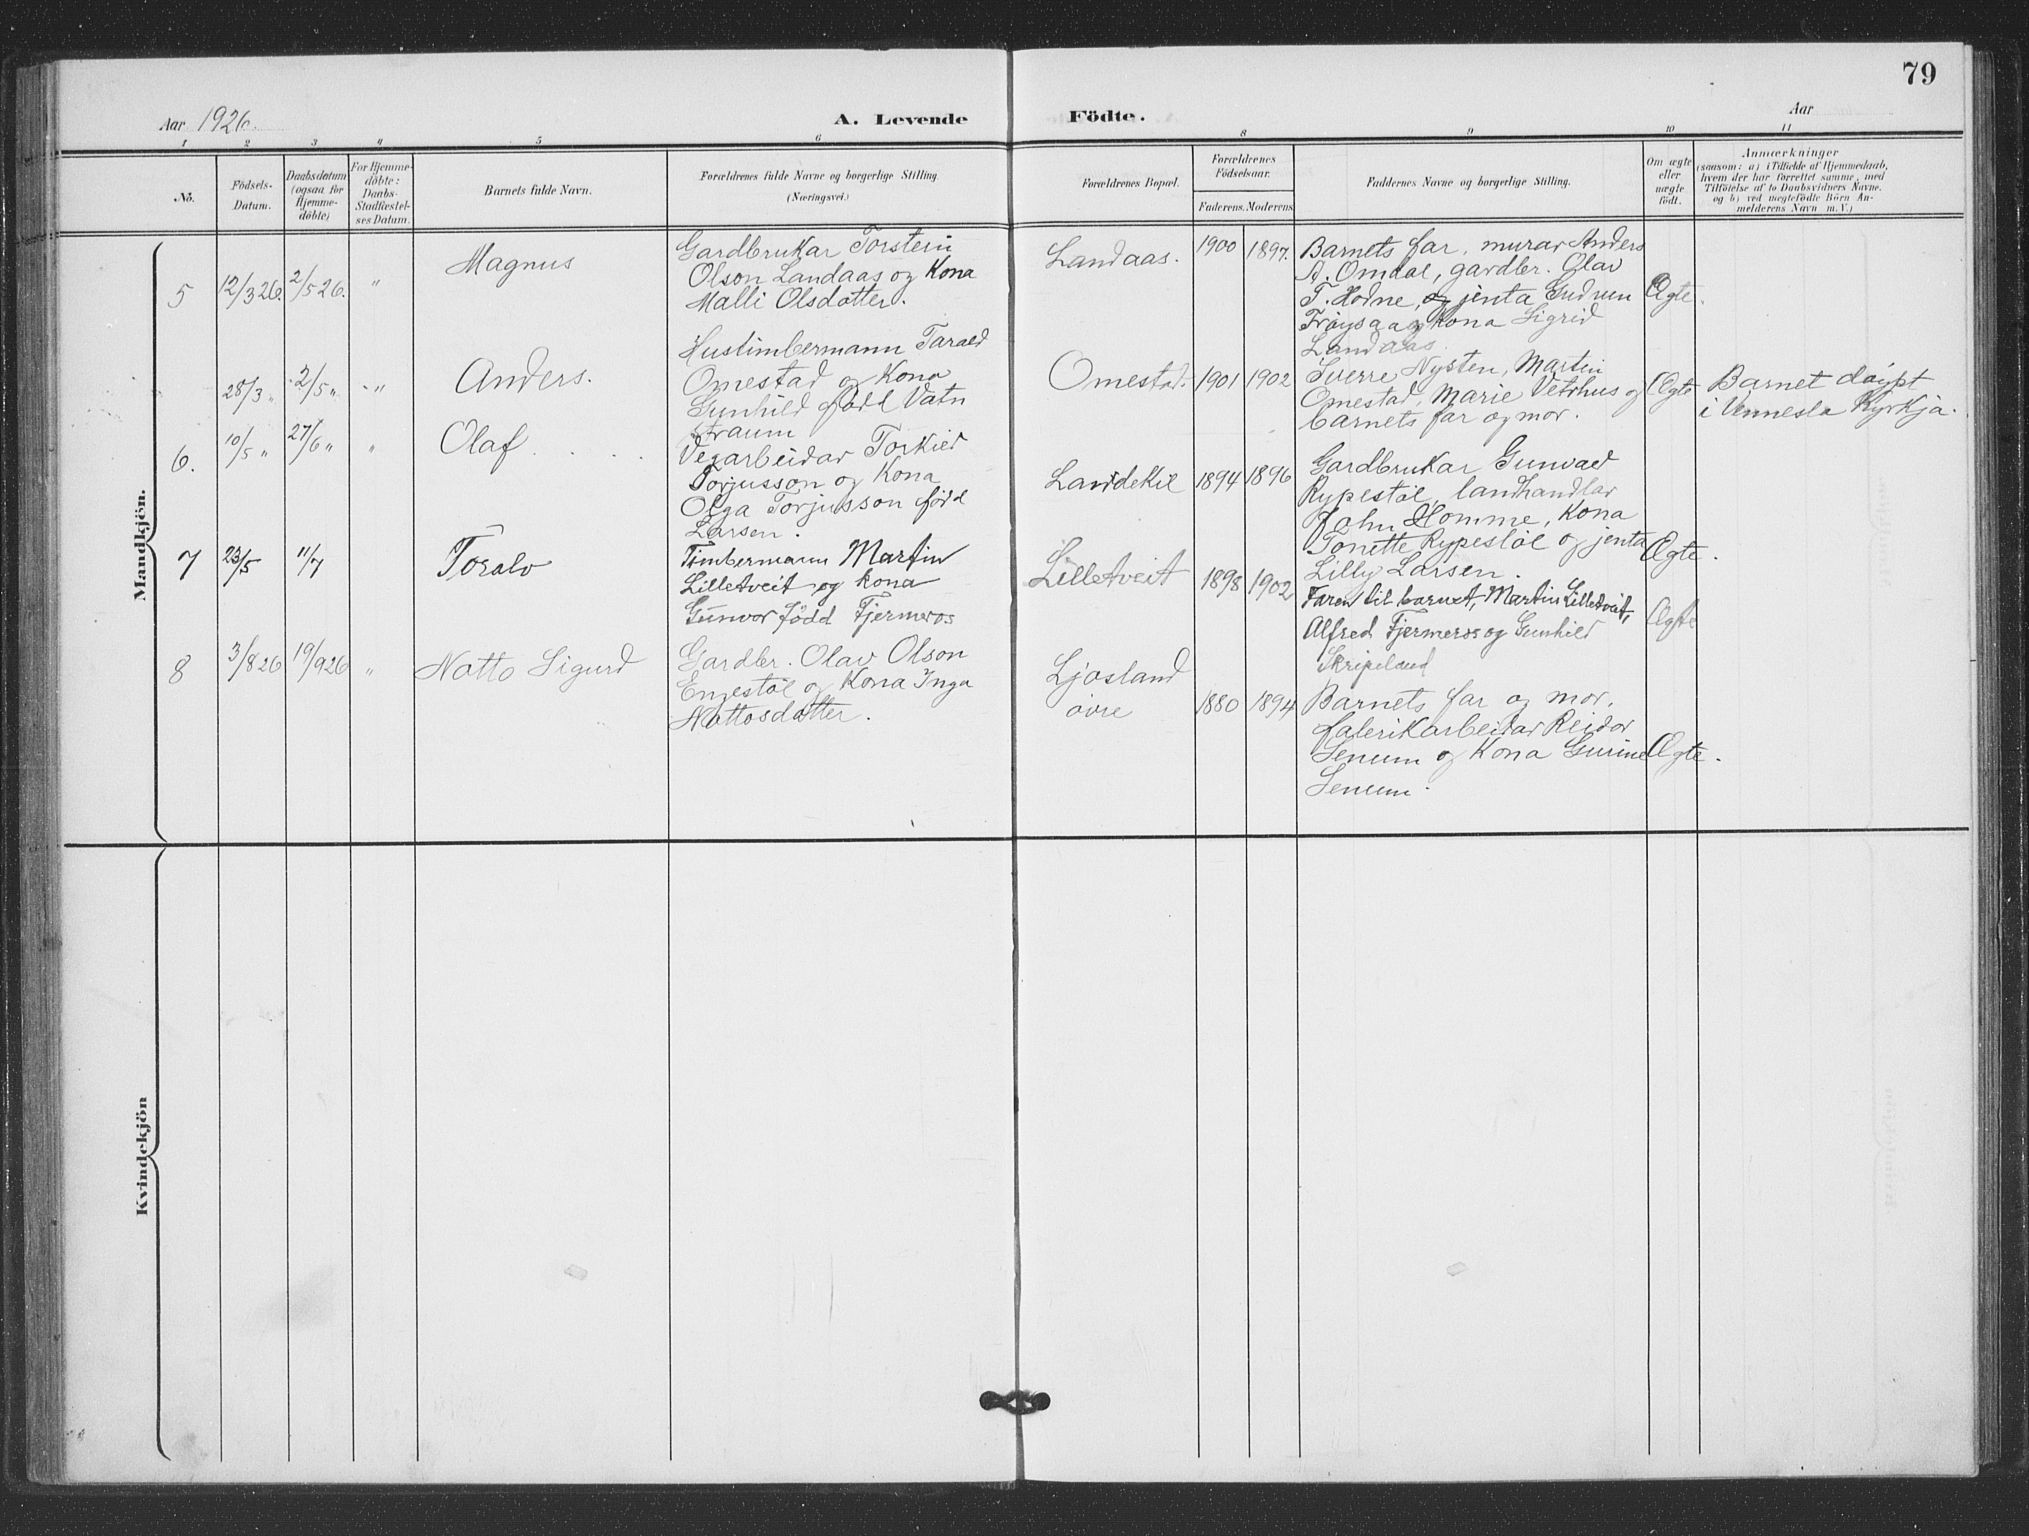 79
Aar 1926.
A. Levende Födte.
Aar
1 2 3 4 5 6 8 9 10 11
No.
Födsels-Datum.
Daabsdatum (ogsaa for Hjemme-döbte)
For Hjemme-döbte: Daabs-Stadfæstel-ses Datum.
Barnets fulde Navn.
Forældrenes fulde Navne og borgerlige Stilling.
(Næringsvei.)
Forældrenes Bopæl.
Forældrenes Födselsaar.
Faderens. Moderens.
Faddernes Navne og borgerlige Stilling.
Om ægte eller uægte födt.
Anmærkninger
(saasom: a) i Tilfælde af Hjemmedaab,
hvem der har forrettet samme, med
Tilföielse af to Daabsvidners Navne.
og b) ved uægtefödte Börn An-
melderens Navn m. V.)
Mandkjön.
5 12/3 26. 2/5 26. " Magnus
Gardbrukar Torstein
Olson Landaas og Kona
Malli Olsdatter.
Landaas. 1900 1897.
Barnets far, murar Anders
A. Omdal, gardbr. Olav
T. Hodne, og jenta Gudrun
Frøysaa og Kona Sigrid
Landaas.
Ægte.
28/3 " 2/5 " " Anders.
Hustimbermann Tarald
Omestad og Kona
Gunhild född Vatn
straum
Omestad. 1901 1902
Sverre Nysten, Martin
Omestad, Marie Vetrhus og
barnets far og mor.
Ægte
Barnet döypt
i Vennesla Kyrkja.
6. 10/5 " 27/6 " " Olaf
Vegarbeidar Torkield
Torjusson og Kona
Olga Torjusson född
Larsen.
Landekil 1894 1896
Gardbrukar Gunvald
Rypestöl, landhandlar
John Homme, Kona
Tonette Rypestöl og jenta
Lilly Larsen.
Ægte.
7 23/5 11/7 Toralv
Timbermann Martin
Lilletveit og kona
Gunvor född Fjermeros
Lilletveit 1898 1902
Faren til barnet, Martin Lilletveit,
Alfred Fjermeros og Gunhild
Skripeland
Ægte
8 3/8 26 19/9 26 " Notto Sigurd
Gardbr. Olav Olson
Engestöl og Kona Inga
Nottosdatter.
Ljosland
övre
1880 1894
Barnets far og mor,
fabrikarbeidar Reidar
Senum og Kona Gurine
Senum.
Ægte.
Kvindekjön